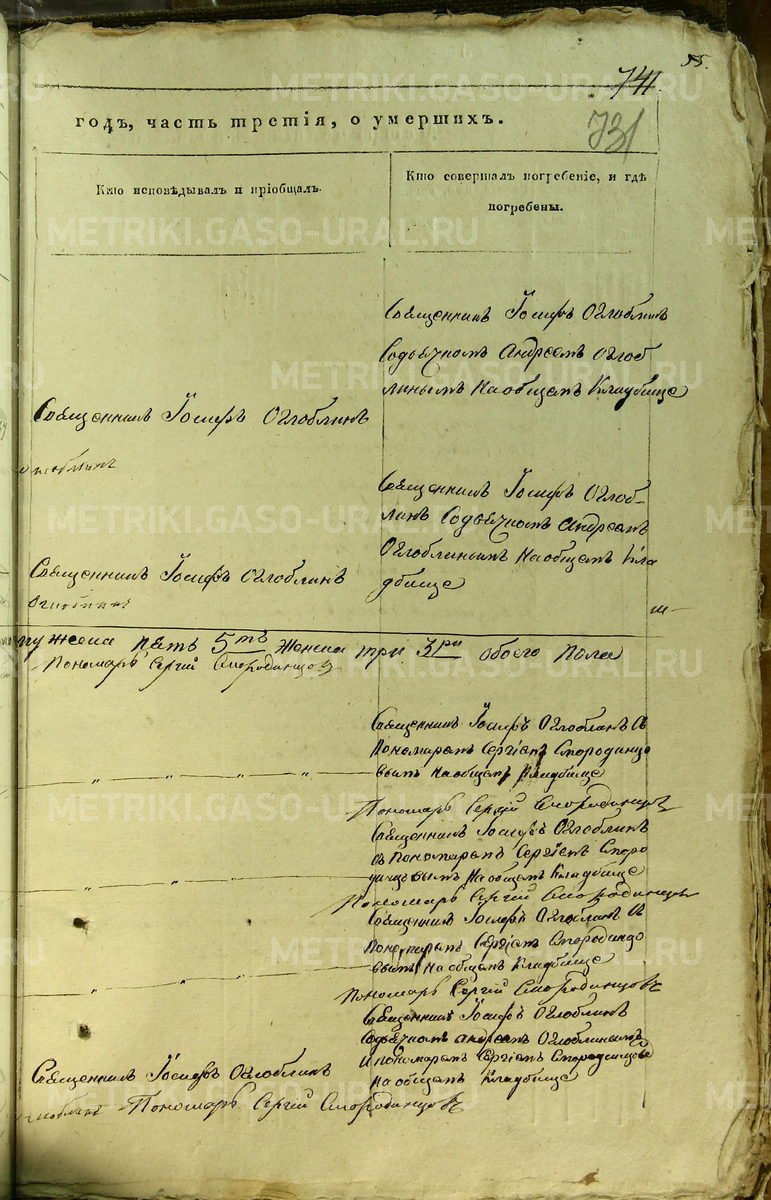 55.
741.
731
годъ, часть третія, о умершихъ.
Кто исповѣдывалъ и пріобщалъ.
Кто совершалъ погребеніе, и гдѣ
погребены.
Священникъ Іосифъ Оглоблинъ
Содьячкомъ Андреемъ Оглоб
линымъ Наобщемъ Кладбище
Священникъ Іосифъ Оглоблинъ
Священникъ Іосифъ Оглоб-
линъ Содьячкомъ Андреемъ
Оглоблинымъ Наобщемъ Кла
дбище
Священникъ Іосифъ Оглоблинъ
пять 5ть женска три 3ри обоего пола
Пономарь Сергій Смородинцовъ
Священникъ Іосифъ Оглоблинъ Съ
Пономаремъ Сергіемъ Смородинцо
вымъ Наобщемъ Кладбище
Пономарь Сергій Смородинцовъ
Священникъ Іосифъ Оглоблинъ
съ Пономаремъ Сергіемъ Сморо
динцовымъ Наобщемъ Кладбище
Пономарь Сергій Смородинцовъ
Священникъ Іосифъ Оглоблинъ Съ
Пономаремъ Сергіемъ Смородинцо
вымъ Наобщемъ Кладбище
Пономарь Сергій Смородинцовъ
Священникъ Іосифъ Оглоблинъ
Содьячкомъ Андреемъ Оглоблинымъ
и пономаремъ Сергіемъ Смородинцовы
Наобщемъ Кладбище
Священникъ Іосифъ Оглоблинъ
Пономарь Сергій Смородинцовъ
METRIKI.GASO-URAL.RU